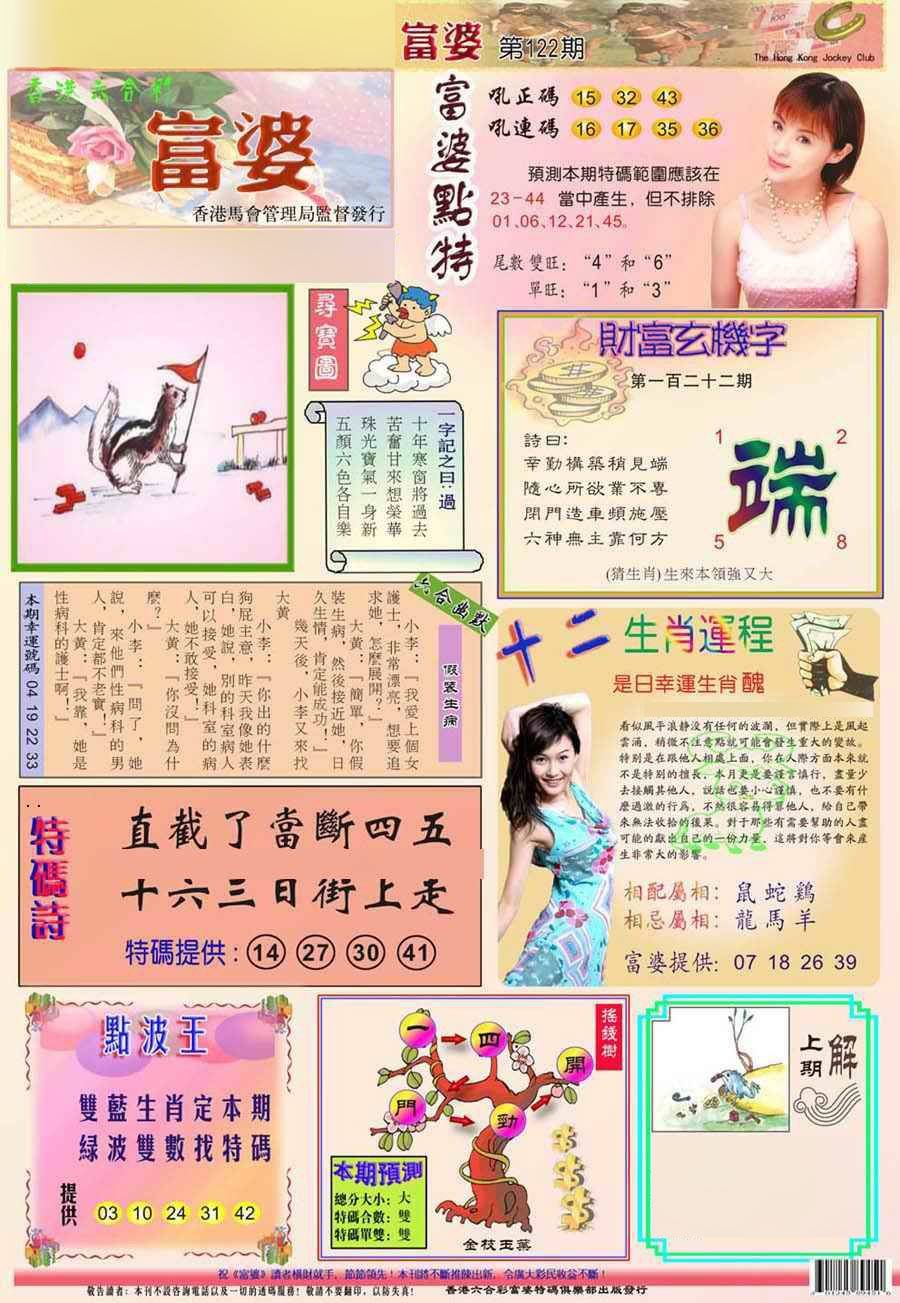 富婆 第122期
The Hong Kong Jockey Club
香港六合彩
富婆
香港馬會管理局監督發行
富婆點特
吼正碼 15 32 43
吼連碼 16 17 35 36
預測本期特碼範圍應該在
23-44 當中產生，但不排除
01、06、12、21、45。
尾數雙旺：“4”和“6”
單旺：“1”和“3”
尋寶圖
一字記之曰：過
十年寒窗將過去
苦奮甘來想榮華
珠光寶氣一身新
五顏六色各自樂
財富玄機字
第一百二十二期
詩曰：
幸勤構築稍見端
隨心所欲業不專
閉門造車頻施壓
六神無主靠何方
1 2
端
5 8
(猜生肖)生來本領強又大
六合幽默
假裝生病
小李：“我愛上個女
護士，非常漂亮，想要追
求她，怎麼展開？”
大黃：“簡單，你假
裝生病，然後接近她，日
久生情，肯定能成功！”
幾天后，小李又來找
大黃
小李：“你出的什麼
狗屁主意，昨天我像她表
白，她說，別的科室病人
可以接受，她科室的病
人，她不敢接受！”
大黃：“你沒問為什
麼？”
小李：“問了，她
說，來他們性病科的男
人，肯定都不老實！”
大黃：“我靠，她是
性病科的護士啊！”
本期幸運號碼 04 19 22 33
十二生肖運程
是日幸運生肖 醜
看似風平浪静没有任何的波瀾，但實際上是風起
雲涌，稍微不注意點就可能會發生重大的變故。
特别是在跟他人相處上面，你在人際方面本來就
不是特别的擅長，本月更是要謹言慎行，盡量少
去接觸其他人，説話也要小心謹慎，也不要有什
麽過激的行爲，不然很容易得罪他人，給自己帶
來無法收拾的後果。對于那些有需要幫助的人盡
可能的獻出自己的一份力量，這將對你等會來産
生非常大的影響。
相配屬相：鼠蛇鷄
相忌屬相：龍馬羊
富婆提供：07 18 26 39
特碼詩
直截了當斷四五
十六三日街上走
特碼提供：14 27 30 41
點波王
雙藍生肖定本期
綠波雙數找特碼
提供 03 10 24 31 42
搖錢樹
一 四 開
門 勁
本期預測
總分大小：大
特碼合數：雙
特碼單雙：雙
金枝玉葉
上期解
祝《富婆》讀者橫財就手，節節領先！本刊將不斷推陳出新，令廣大彩民收益不斷！
敬告讀者：本刊不設咨詢電話以及一切的透碼服務！敬請不要翻印，以防失真！
香港六合彩富婆特碼俱樂部出版發行